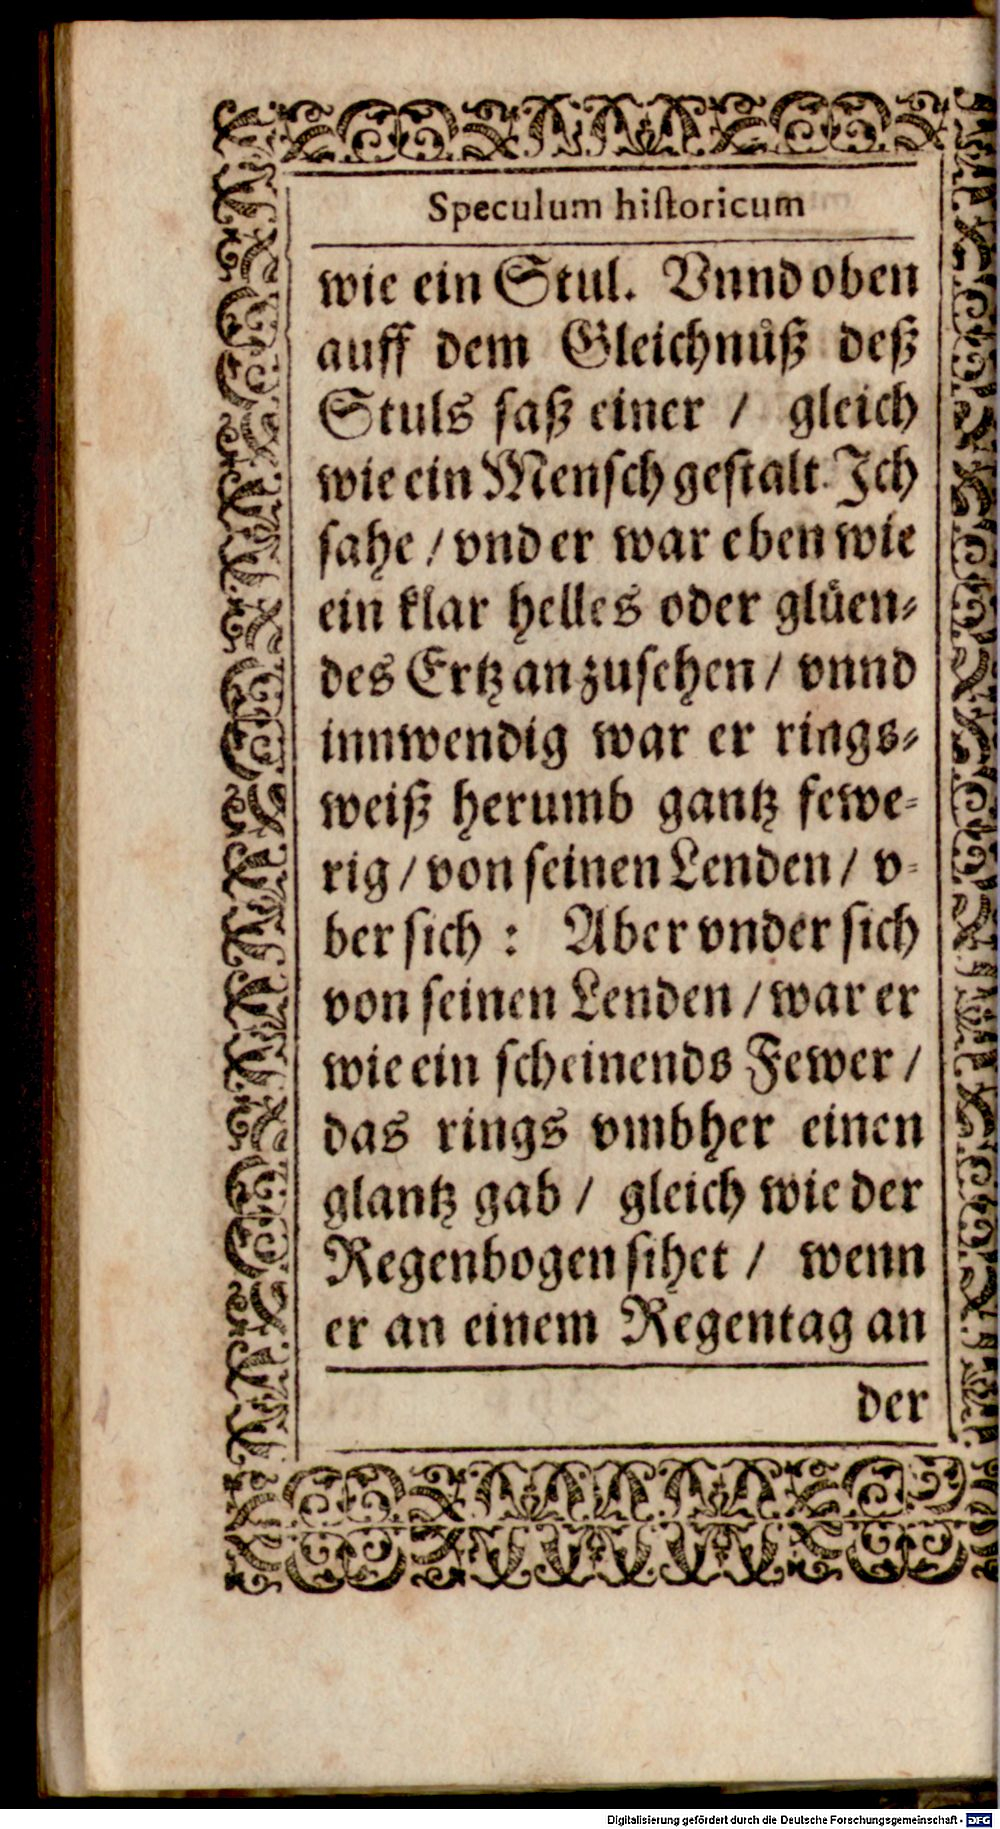 Speculum hiſtoricum
wie ein Stul. Vnnd oben
auff dem Gleichnuͤß deß
Stuls ſaß einer / gleich
wie ein Menſch geſtalt. Ich
ſahe / vnd er war eben wie
ein klar helles oder gluͤen⸗
des Ertz anzuſehen / vnnd
innwendig war er rings⸗
weiß herumb gantz fewe⸗
rig / von ſeinen Lenden / v⸗
ber ſich : Aber vnder ſich
von ſeinen Lenden / war er
wie ein ſcheinends Fewer /
das rings vmbher einen
glantz gab / gleich wie der
Regenbogen ſihet / wenn
er an einem Regentag an
der
Digitalisierung gefördert durch die Deutsche Forschungsgemeinschaft - DFG